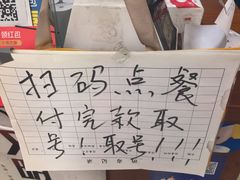 领红包
扫码点餐
付完款取
号！取号！！！